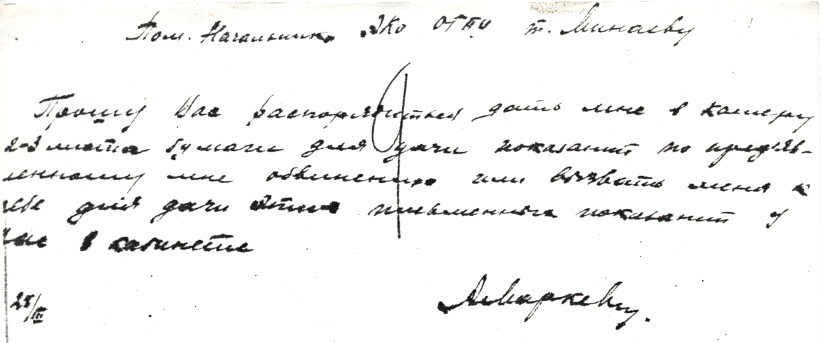 Пом. Начальник ЭКО ОГПУ т. Минаеву
Прошу Вас распорядиться дать мне в камеру
2-3 листа бумаги для дачи показаний по предъяв-
ленному мне обвинению или вызвать меня к
себе для дачи этих письменных показаний у
Вас в кабинете
25/III
А. Маркевич.